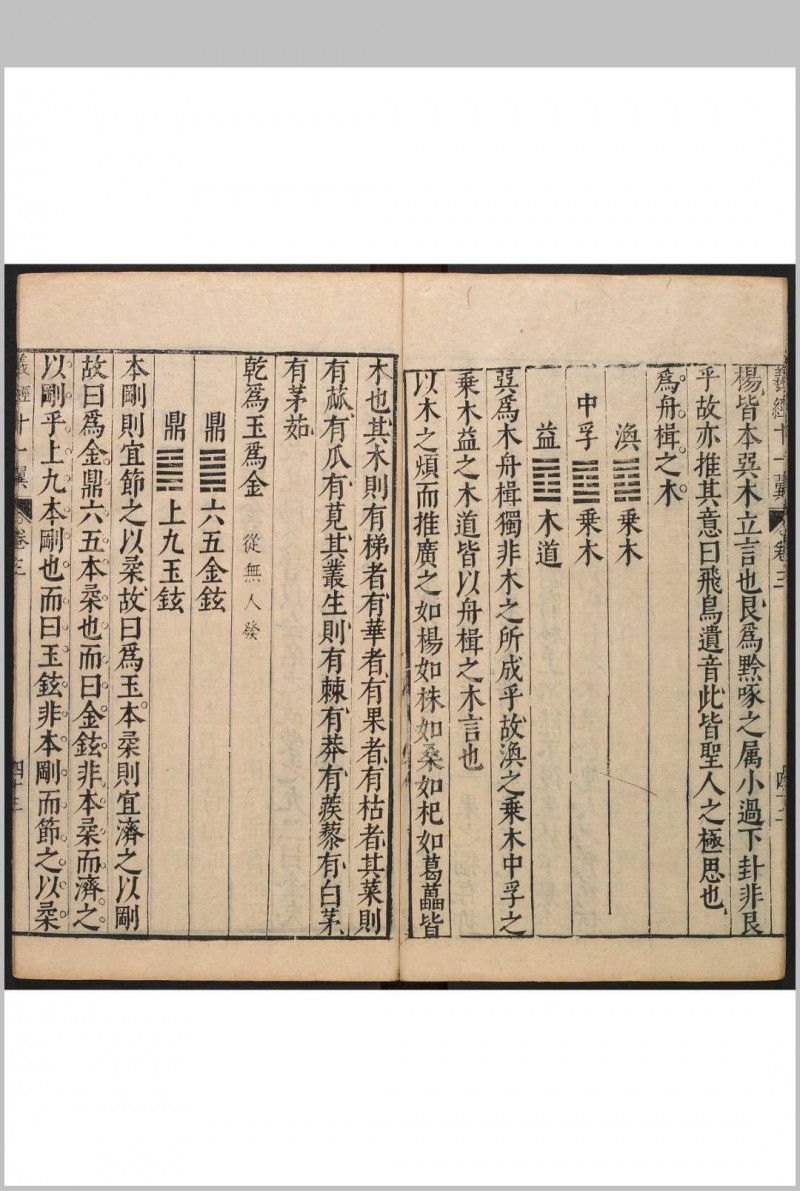 楊皆本巽木立言也艮爲黔啄之属小過下卦非艮
乎故亦推其意曰飛鳥遺音此皆聖人之極思也
爲舟楫之木
渙䷺乗木
中孚䷼乗木
益䷩木道
巽爲木舟楫獨非木之所成乎故渙之乗木中孚之
乗木益之木道皆以舟楫之木言也
以木之煩而推廣之如楊如株如桑如杞如葛藟皆
木也其木則有梯者有華者有果者有枯者其菜則
有蓏有瓜有莧其叢生則有棘有莽有蒺藜有白茅
有茅茹
乾爲玉爲金 從無人發
鼎䷱六五金鉉
鼎䷱上九玉鉉
本剛則宜節之以柔故曰爲玉本柔則宜濟之以剛
故曰爲金鼎六五本柔也而曰金鉉非本柔而濟之
以剛乎上九本剛也而曰玉鉉非本剛而節之以柔
羲經十一翼 卷三 四十三